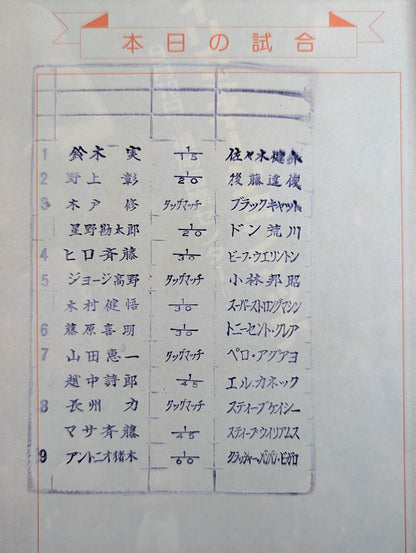 本日の試合
1 鈴木 実 1/15 佐々木健介
2 野上 彰 1/20 後藤達俊
3 木戸 修 タッグマッチ ブラックキャット
星野勘太郎 1/20 ドン荒川
4 ヒロ斉藤 1/30 ビーフ・ウエリントン
5 ジョージ高野 タッグマッチ 小林邦昭
木村健悟 1/30 スーパーストロングマシン
6 藤原喜明 1/30 トニーセント・クレア
7 山田恵一 タッグマッチ ペロ・アグアヨ
越中詩郎 1/45 エル・カネック
8 長州 力 タッグマッチ スティーブケイシー
マサ斉藤 1/45 スティーブ・ウイリアムス
9 アントニオ猪木 1/60 クラッシャー・バンバン・ビガロ